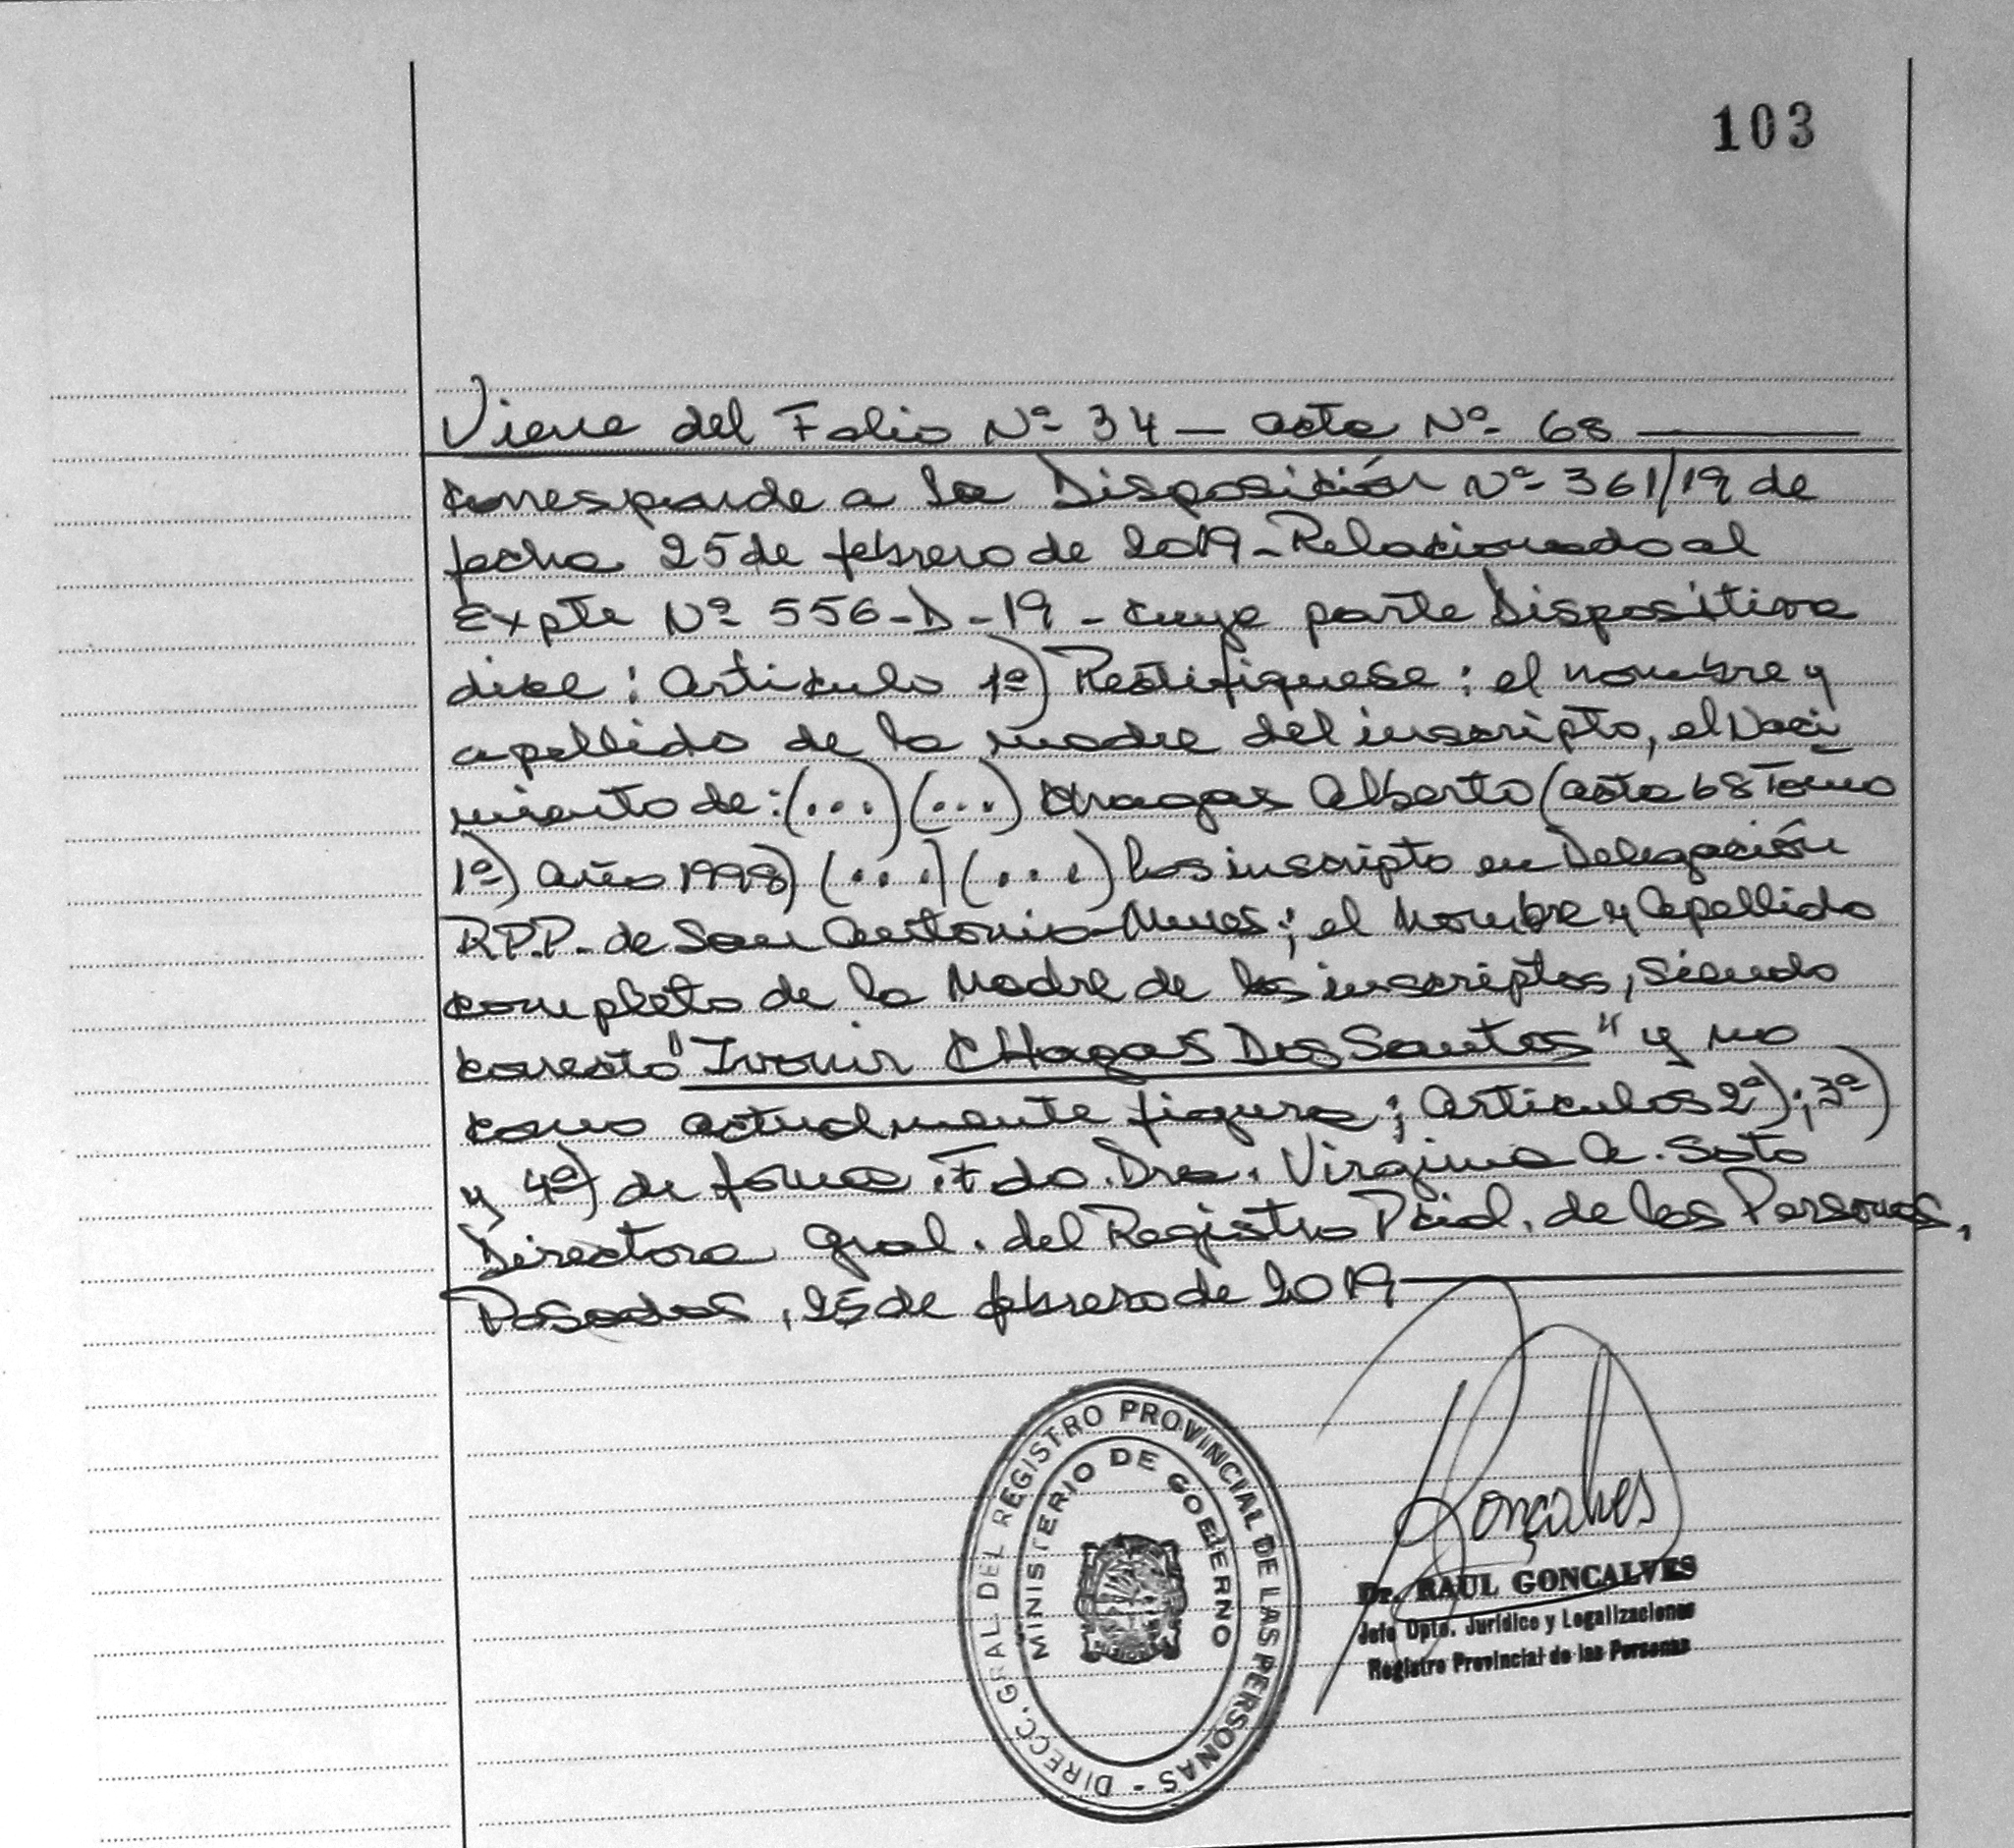 103
Viene del Folio Nº 34 — acta Nº 68
corresponde a la Disposición Nº 361/19 de
fecha 25 de febrero de 2019 - Relacionado al
Expte Nº 556-D-19 - cuya parte Dispositiva
dice: Articulo 1º) Rectifiquese: el nombre y
apellido de la madre del inscripto, el Naci
miento de: (...) (...) Chagas Alberto (acta 68 Tomo
1º) Año 1998) (...) (...) los inscripto en Delegación
R.P.P. de San Antonio - Mnes; el Nombre y Apellido
completo de la Madre de los inscriptos, siendo
correcto "Ivonir CHagas Dos Santos" y no
como actualmente figura; Articulos 2º); 3º)
y 4º) de forma. Fdo. Dra. Virginia A. Soto
Directora Gral. del Registro Pcial. de las Personas,
Posadas, 25 de febrero de 2019
DIRECC. GRAL DEL REGISTRO PROVINCIAL DE LAS PERSONAS -
MINISTERIO DE GOBIERNO
Gonçalves
Dr. RAUL GONCALVES
Jefe Dpto. Jurídico y Legalizaciones
Registro Provincial de las Personas